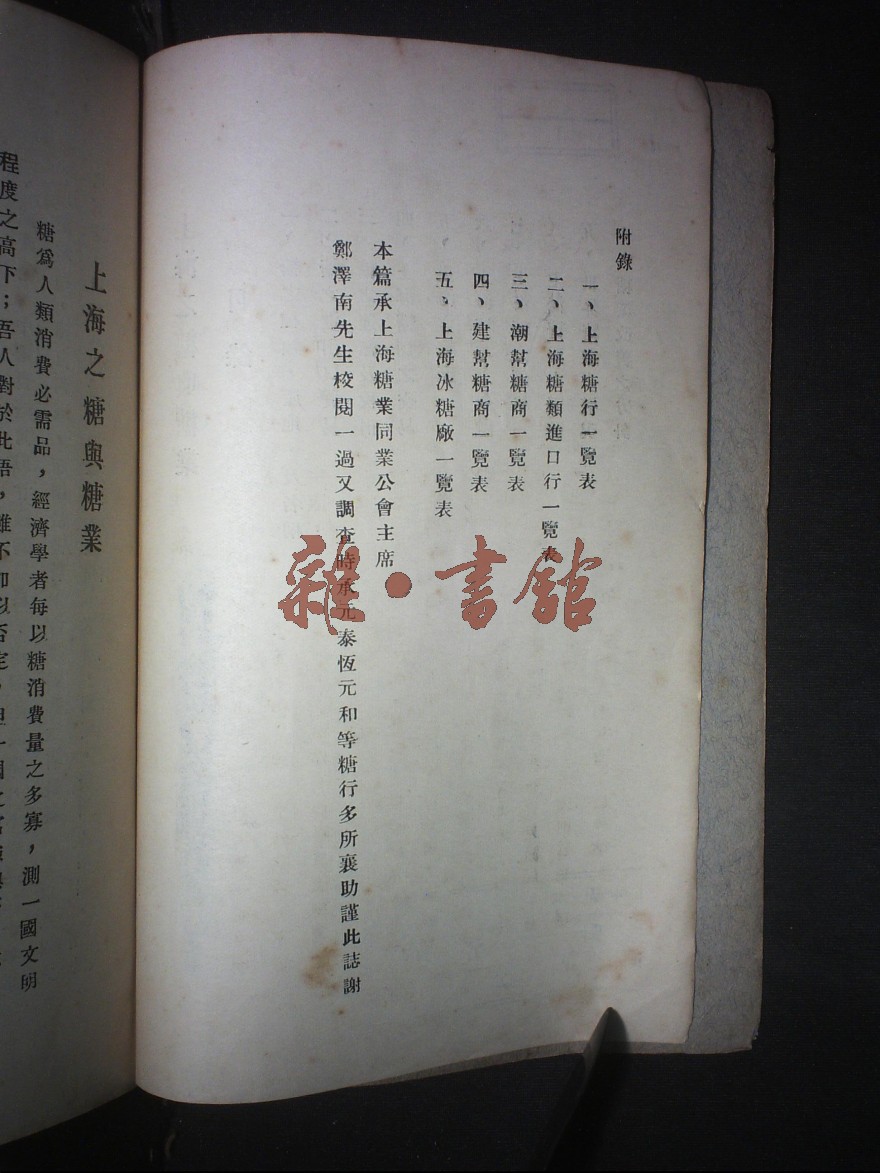 附錄
一、上海糖行一覽表
二、上海糖類進口行一覽表
三、潮幫糖商一覽表
四、建幫糖商一覽表
五、上海冰糖廠一覽表
本篇承上海糖業同業公會主席
鄭澤南先生校閱一過又調查時承元泰恆元和等糖行多所襄助謹此誌謝
雜·書館
上海之糖與糖業
糖爲人類消費必需品，經濟學者每以糖消費量之多寡，測一國文明
程度之高下；吾人對於此語，雖不